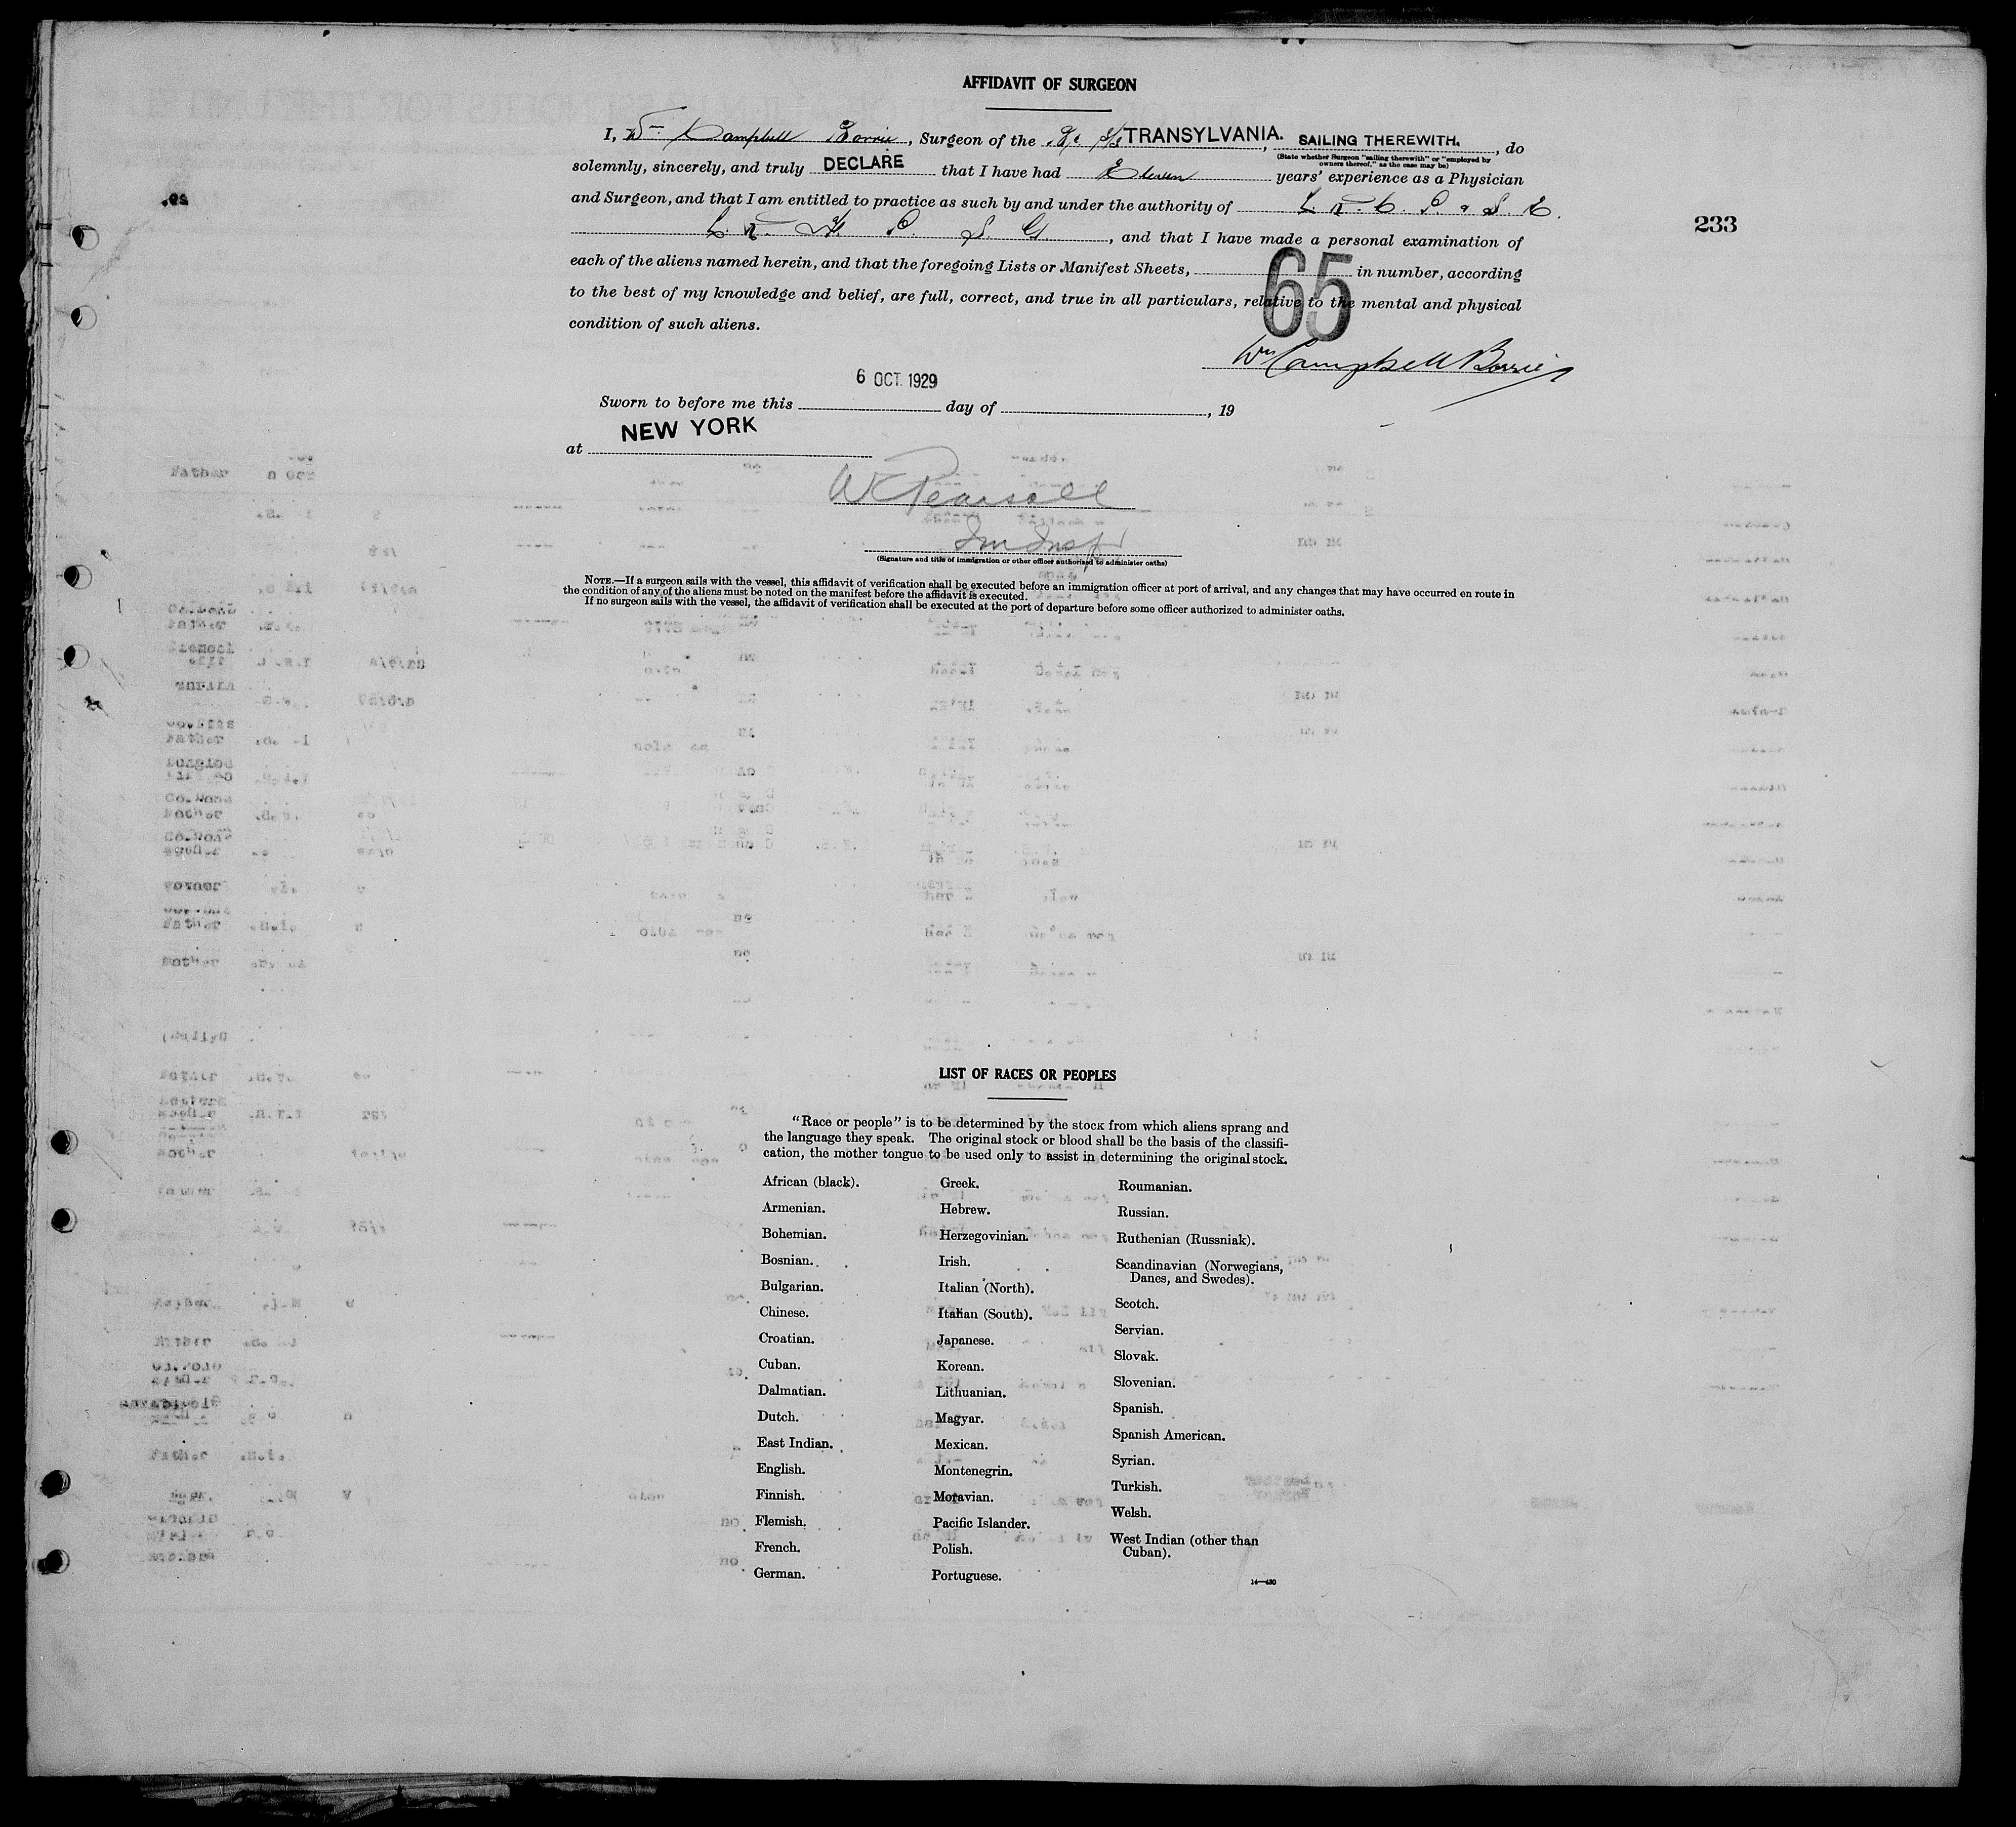 AFFIDAVIT OF SURGEON
I, Wm Campbell Borrie, Surgeon of the S/S TRANSYLVANIA, SAILING THEREWITH, do
(State whether Surgeon "sailing therewith" or "employed by
owners thereof," as the case may be)
solemnly, sincerely, and truly DECLARE that I have had Eleven years' experience as a Physician
and Surgeon, and that I am entitled to practice as such by and under the authority of L. R. C. P. & S. E.
233
L. R. F. P. S. G., and that I have made a personal examination of
each of the aliens named herein, and that the foregoing Lists or Manifest Sheets, 65 in number, according
to the best of my knowledge and belief, are full, correct, and true in all particulars, relative to the mental and physical
condition of such aliens.
Wm Campbell Borrie
6 OCT. 1929
Sworn to before me this day of , 19
at NEW YORK
W Pearsall
Im Insp
(Signature and title of immigration or other officer authorized to administer oaths)
NOTE.—If a surgeon sails with the vessel, this affidavit of verification shall be executed before an immigration officer at port of arrival, and any changes that may have occurred en route in
the condition of any of the aliens must be noted on the manifest before the affidavit is executed.
If no surgeon sails with the vessel, the affidavit of verification shall be executed at the port of departure before some officer authorized to administer oaths.
LIST OF RACES OR PEOPLES
"Race or people" is to be determined by the stock from which aliens sprang and
the language they speak. The original stock or blood shall be the basis of the classifi-
cation, the mother tongue to be used only to assist in determining the original stock.
African (black).
Armenian.
Bohemian.
Bosnian.
Bulgarian.
Chinese.
Croatian.
Cuban.
Dalmatian.
Dutch.
East Indian.
English.
Finnish.
Flemish.
French.
German.
Greek.
Hebrew.
Herzegovinian.
Irish.
Italian (North).
Italian (South).
Japanese.
Korean.
Lithuanian.
Magyar.
Mexican.
Montenegrin.
Moravian.
Pacific Islander.
Polish.
Portuguese.
Roumanian.
Russian.
Ruthenian (Russniak).
Scandinavian (Norwegians,
Danes, and Swedes).
Scotch.
Servian.
Slovak.
Slovenian.
Spanish.
Spanish American.
Syrian.
Turkish.
Welsh.
West Indian (other than
Cuban).
14—430